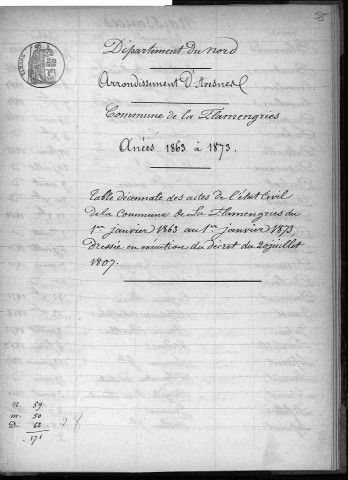 Département du Nord
Arrondissement D'Avesnes
Commune de la Flamengries
Anées 1863 à 1873.
Table décennale des actes de l'état Civil
de la Commune de La Flamengries du
1er janvier 1863 au 1er janvier 1873,
Dressée en exécution du décret du 20 juillet
1807.
N. 59
M. 50
D. 62
171